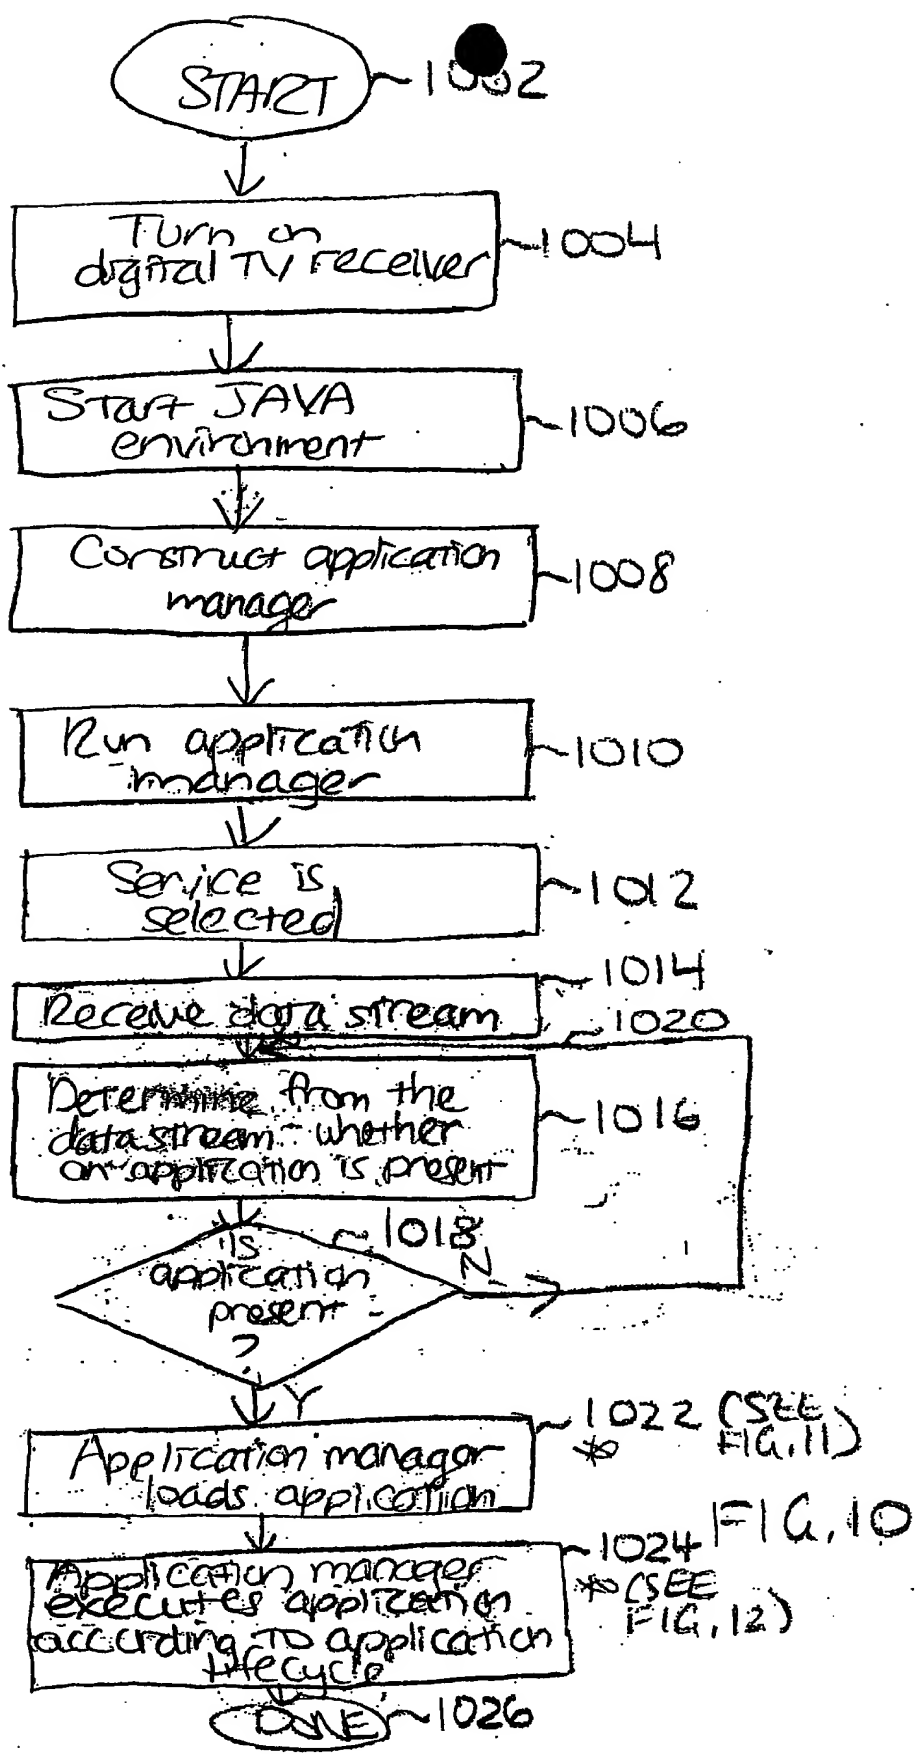 START
1002
Turn on
digital TV receiver
1004
Start JAVA
environment
1006
Construct application
manager
1008
Run application
manager
1010
Service is
selected
1012
Receive data stream
1014
1020
Determine from the
data stream whether
an application is present
1016
is
application
present
?
1018
N
Y
Application manager
loads application
1022 (SEE
* FIG. 11)
FIG. 10
Application manager
executes application
according to application
lifecycle
1024
* (SEE
FIG. 12)
DONE
1026